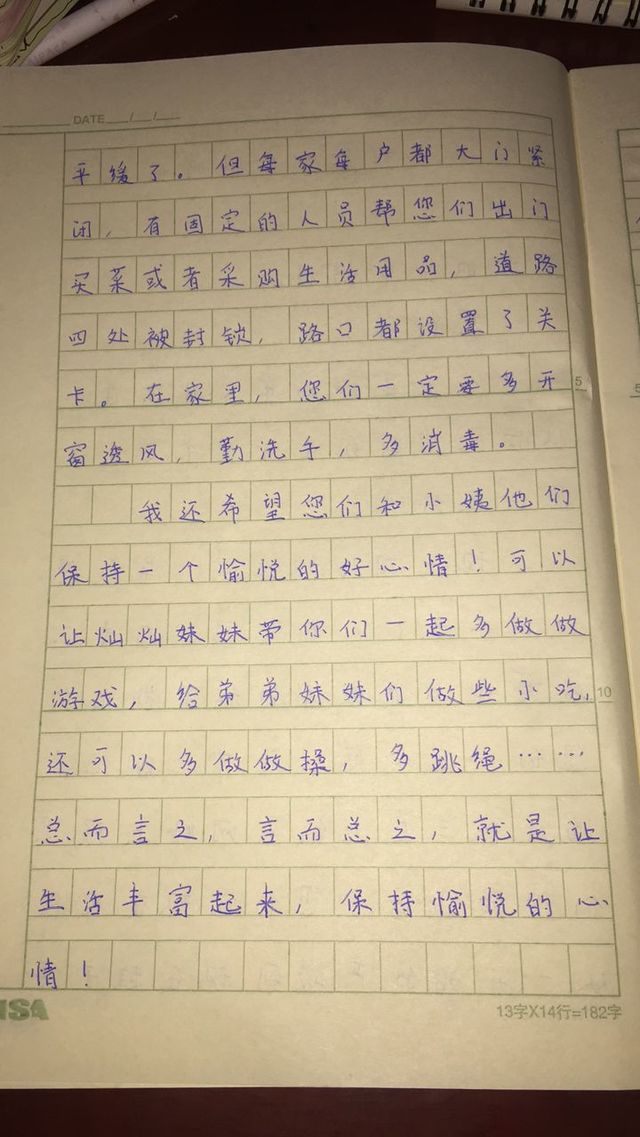 DATE__/__/__
平缓了。但每家每户都大门紧
闭，有固定的人员帮您们出门
买菜或者采购生活用品，道路
四处被封锁，路口都设置了关
卡。在家里，您们一定要多开
5
窗透风，勤洗手，多消毒。
我还希望您们和小姨他们
保持一个愉悦的好心情！可以
让灿灿妹妹带你们一起多做做
游戏，给弟弟妹妹们做些小吃，
10
还可以多做做操，多跳绳……
总而言之，言而总之，就是让
生活丰富起来，保持愉悦的心
情！
13字X14行=182字